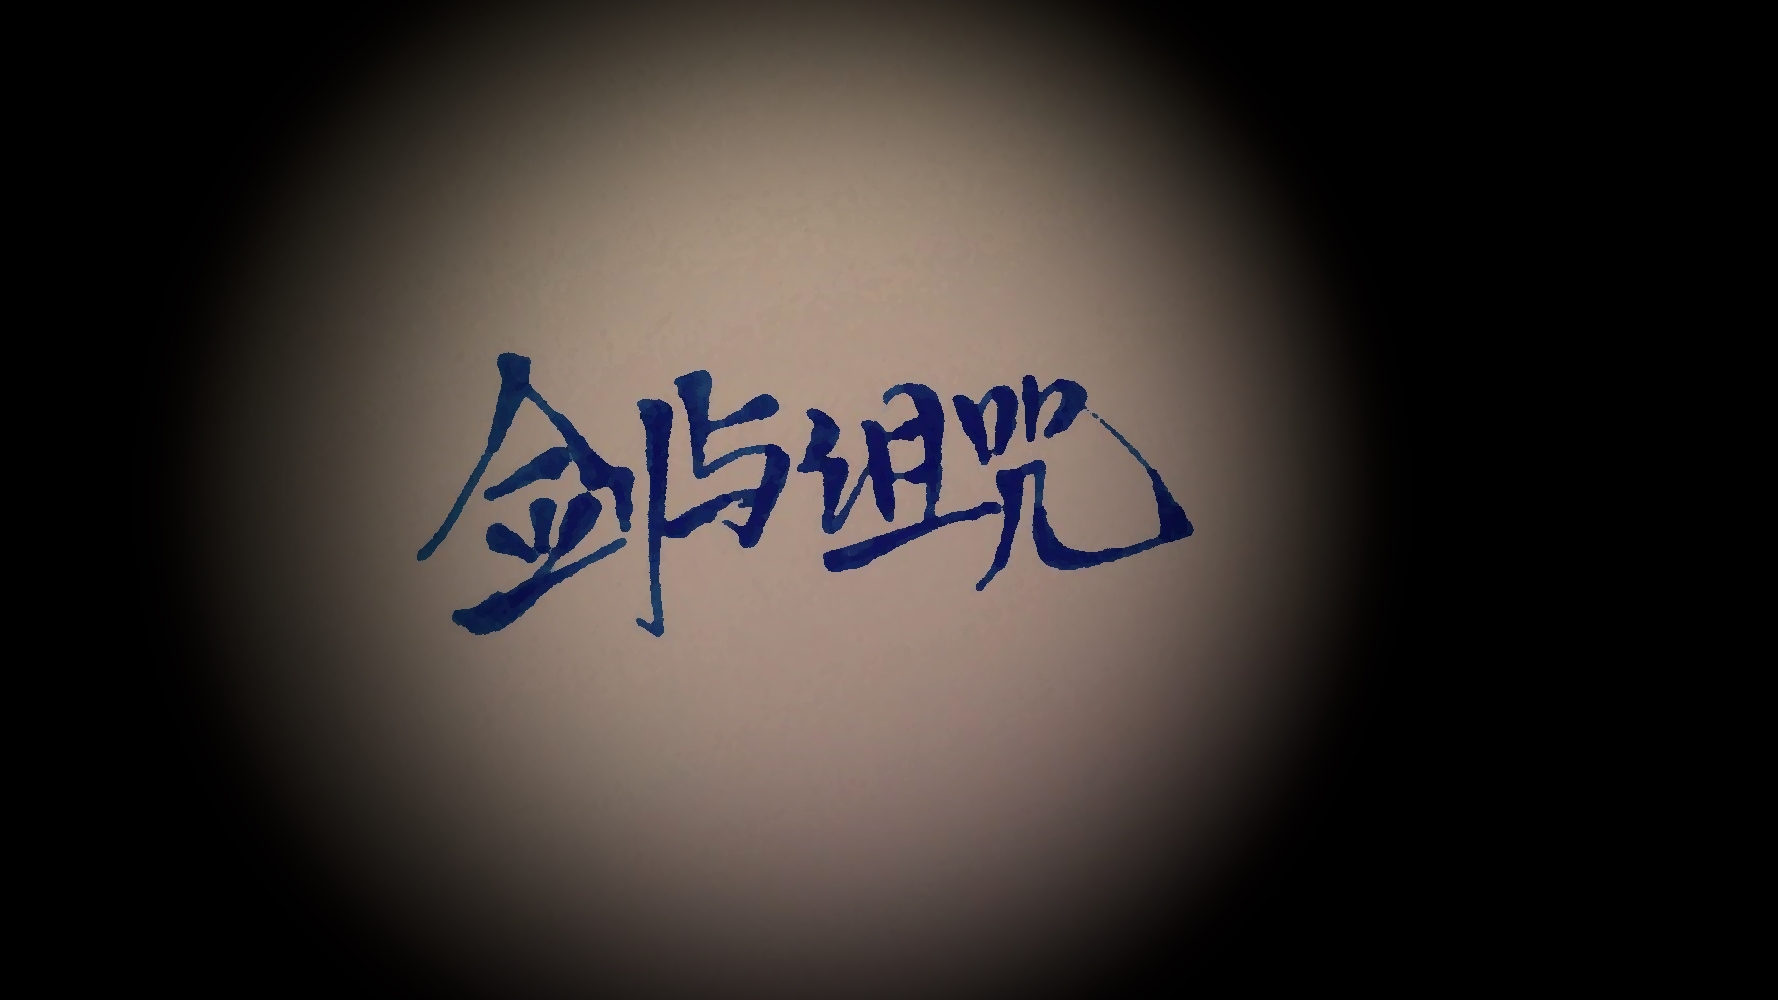 剑与诅咒